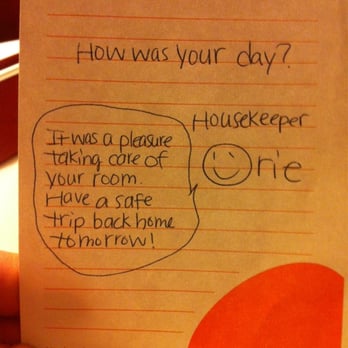 How was your day?
Housekeeper
Orie
It was a pleasure
taking care of
your room.
Have a safe
trip back home
tomorrow!